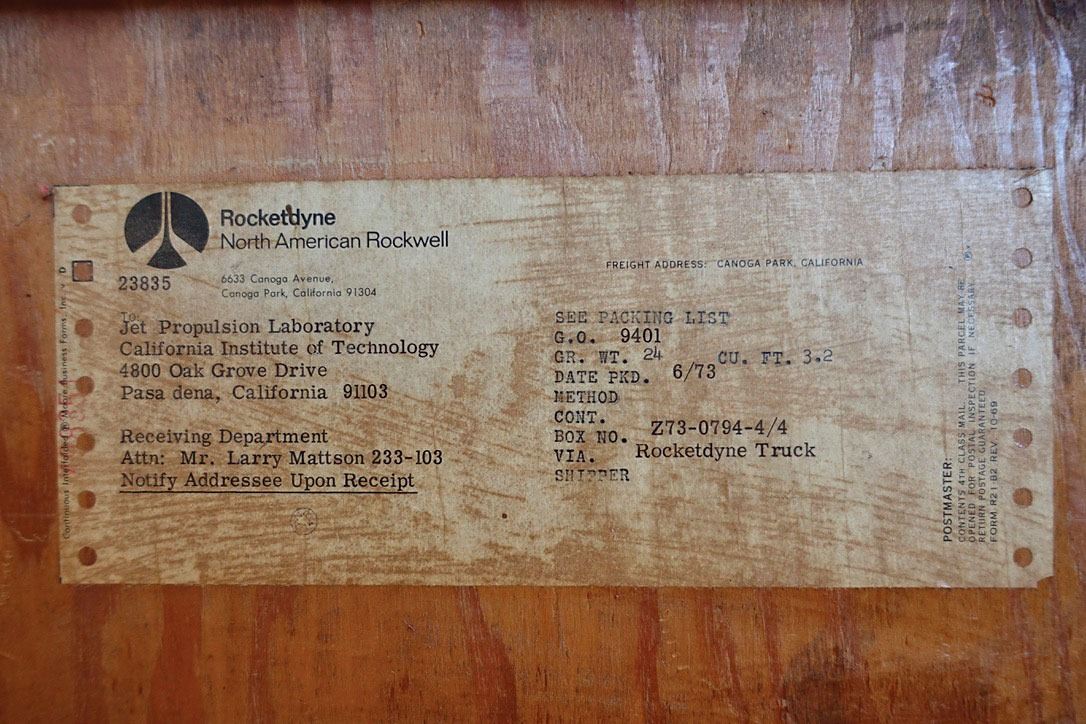 Rocketdyne
North American Rockwell
23835
6633 Canoga Avenue,
Canoga Park, California 91304
FREIGHT ADDRESS: CANOGA PARK, CALIFORNIA
To:
Jet Propulsion Laboratory
California Institute of Technology
4800 Oak Grove Drive
Pasa dena, California 91103
Receiving Department
Attn: Mr. Larry Mattson 233-103
Notify Addressee Upon Receipt
SEE PACKING LIST
G.O. 9401
GR. WT. 24 CU. FT. 3.2
DATE PKD. 6/73
METHOD
CONT.
BOX NO. Z73-0794-4/4
VIA. Rocketdyne Truck
SHIPPER
POSTMASTER:
CONTENTS 4TH CLASS MAIL. THIS PARCEL MAY BE
OPENED FOR POSTAL INSPECTION IF NECESSARY.
RETURN POSTAGE GUARANTEED
FORM R21-B2 REV. 10-69
Continuous Interfolded by Moore Business Forms, Inc.